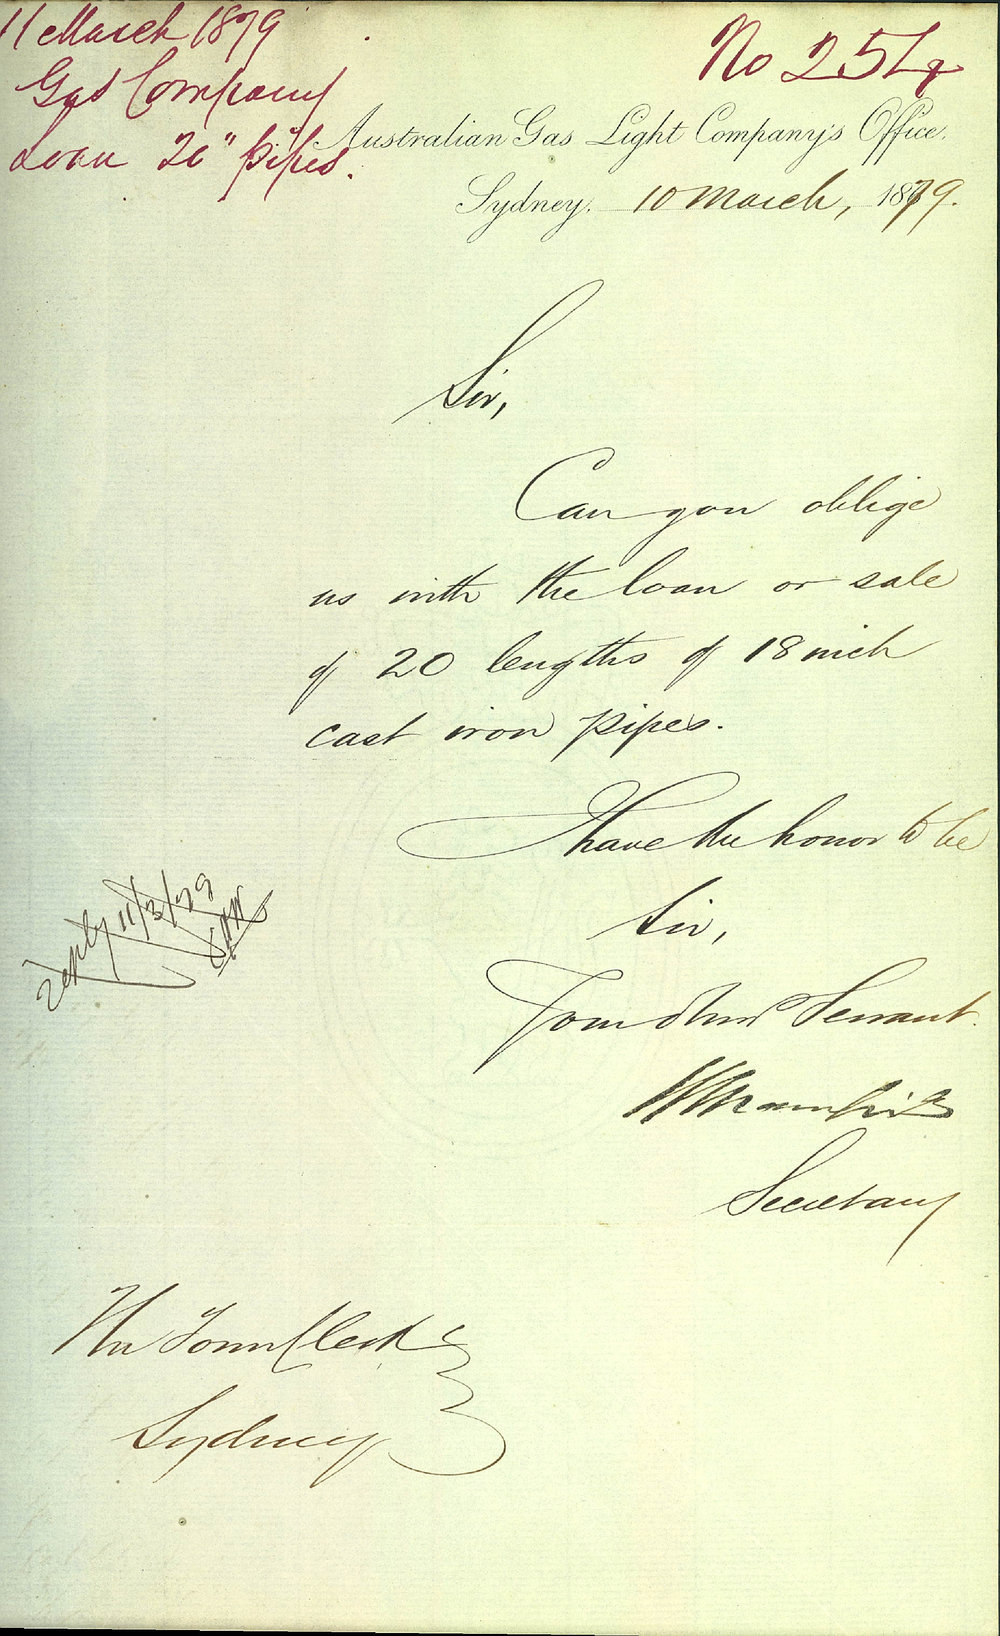 11 March 1879
Gas Company
Loan 20" pipes.
No 254
Australian Gas Light Company's Office,
Sydney, 10 March, 1879.
Sir,
Can you oblige
us with the loan or sale
of 20 lengths of 18 inch
cast iron pipes.
I have the honor to be
Sir,
Your Obed Servant.
Secretary
reply 11/3/79
The Town Clerk
Sydney